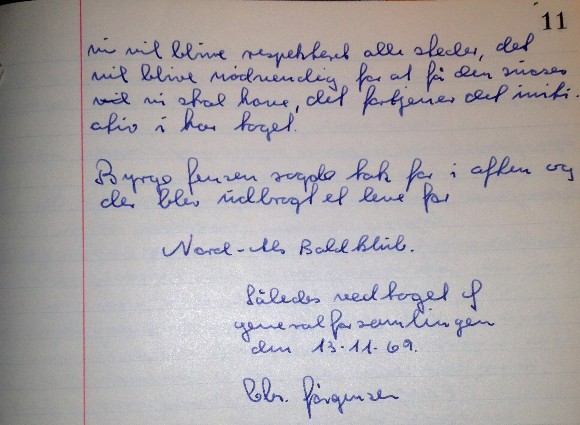 11
vi vil blive respekteret alle steder, det
vil blive nødvendig for at få den succes
vi skal have, det fortjener det initi-
ativ i har taget.
Byrge Jensen sagde tak for i aften og
der blev udbragt et leve for
Nord-Als Boldklub.
Således vedtaget af
generalforsamlingen
den 13-11-69.
Chr. Jörgensen